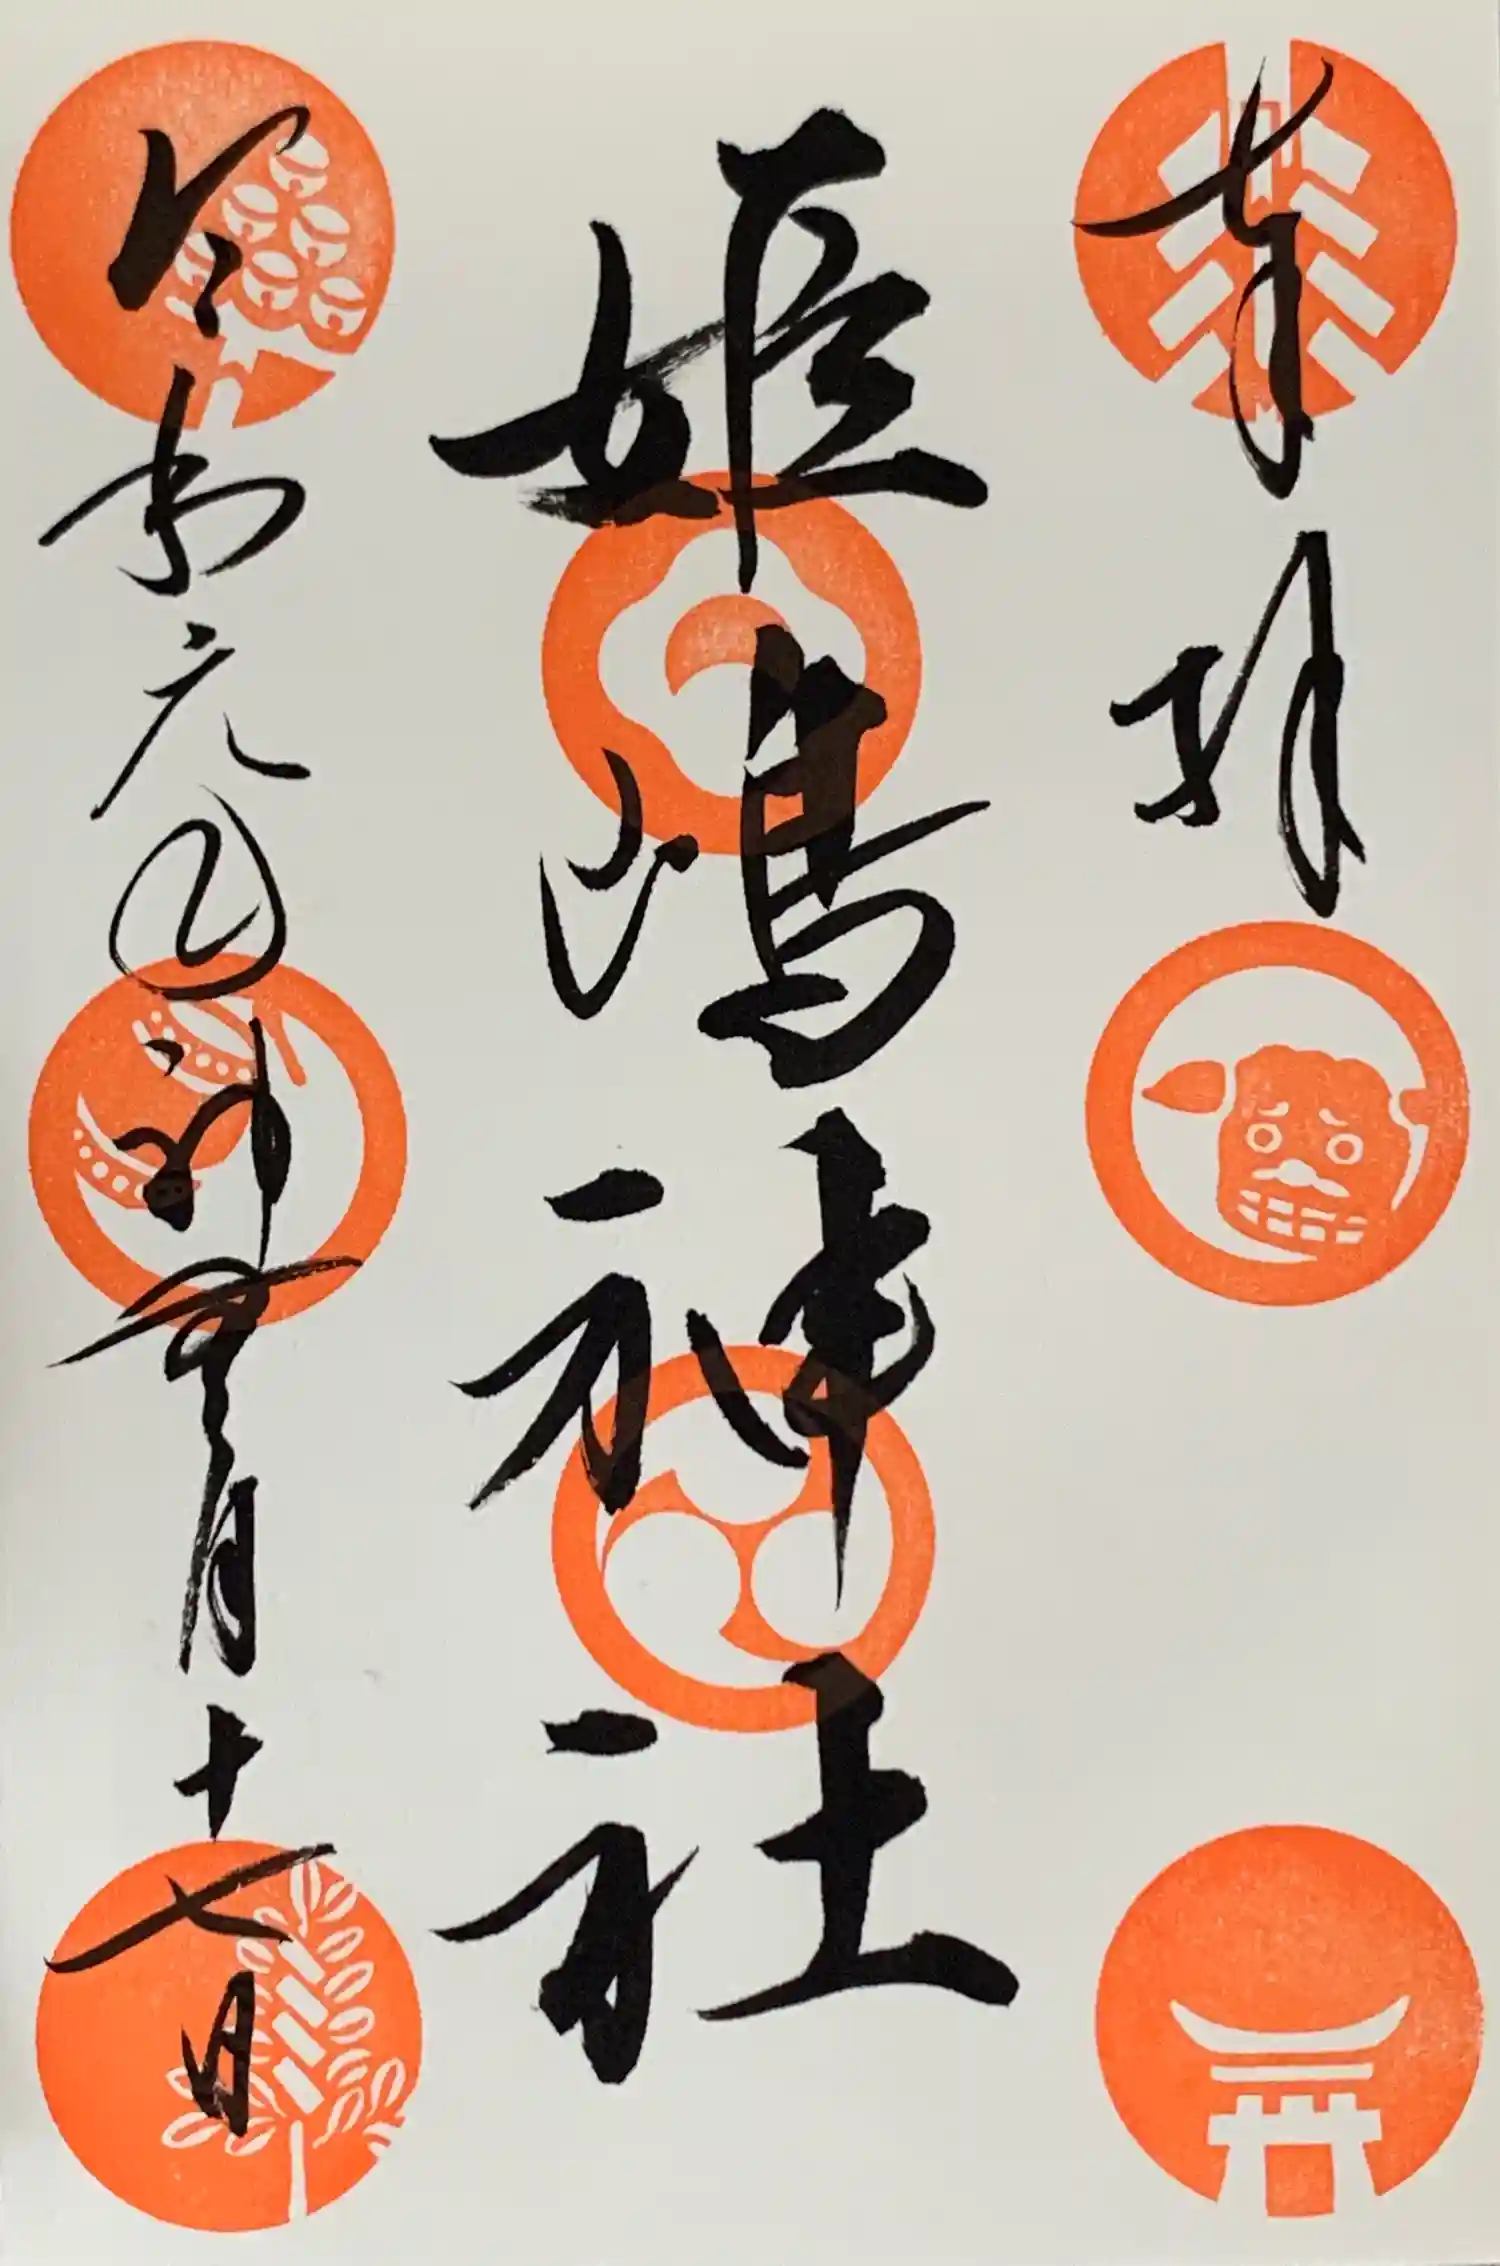 奉拝
姫嶋神社
令和元年神無月十七日